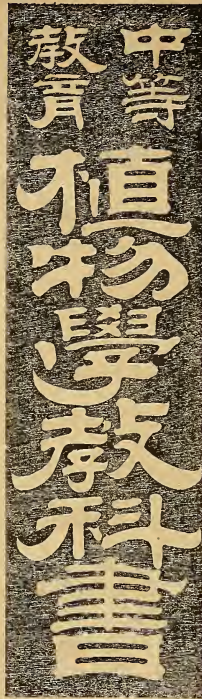 中等
教育
植物學教科書